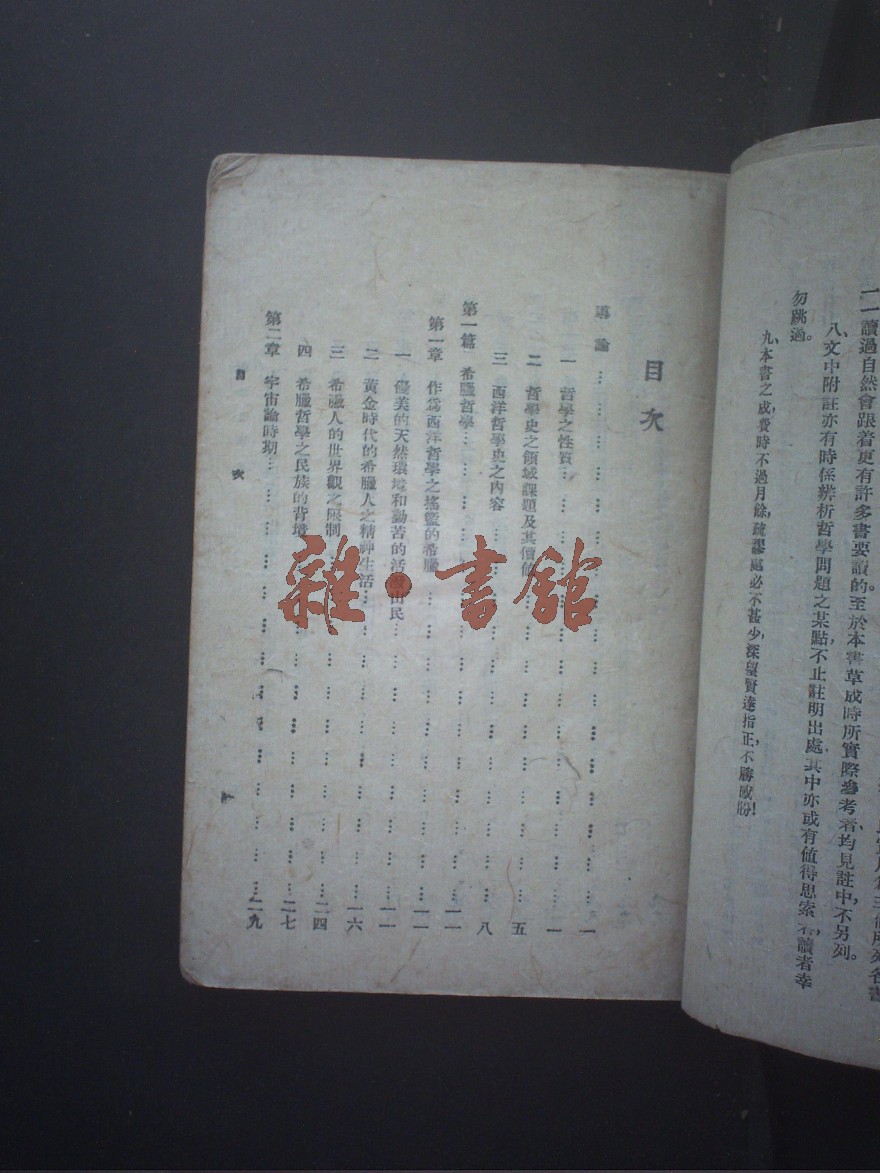 一一讀過自然會跟着更有許多書要讀的至於本書草成時所實際參考者,均見註中,不另列。
八、文中附註亦有時係辨析哲學問題之某點,不止註明出處,其中亦或有值得思索者,讀者幸
勿跳過。
九、本書之成,費時不過月餘,疏謬處必不甚少,深望賢達指正,不勝感盼!
目次
導論……一
一 哲學之性質……一
二 哲學史之領域課題及其價值……五
三 西洋哲學史之內容……八
第一篇 希臘哲學……一一
第一章 作為西洋哲學之搖籃的希臘……一一
一 優美的天然環境和勤苦的活潑山民……一一
二 黃金時代的希臘人之精神生活……一六
三 希臘人的世界觀之限制……二四
四 希臘哲學之民族的背境……二七
第二章 宇宙論時期……二九
目 次
雜·書館